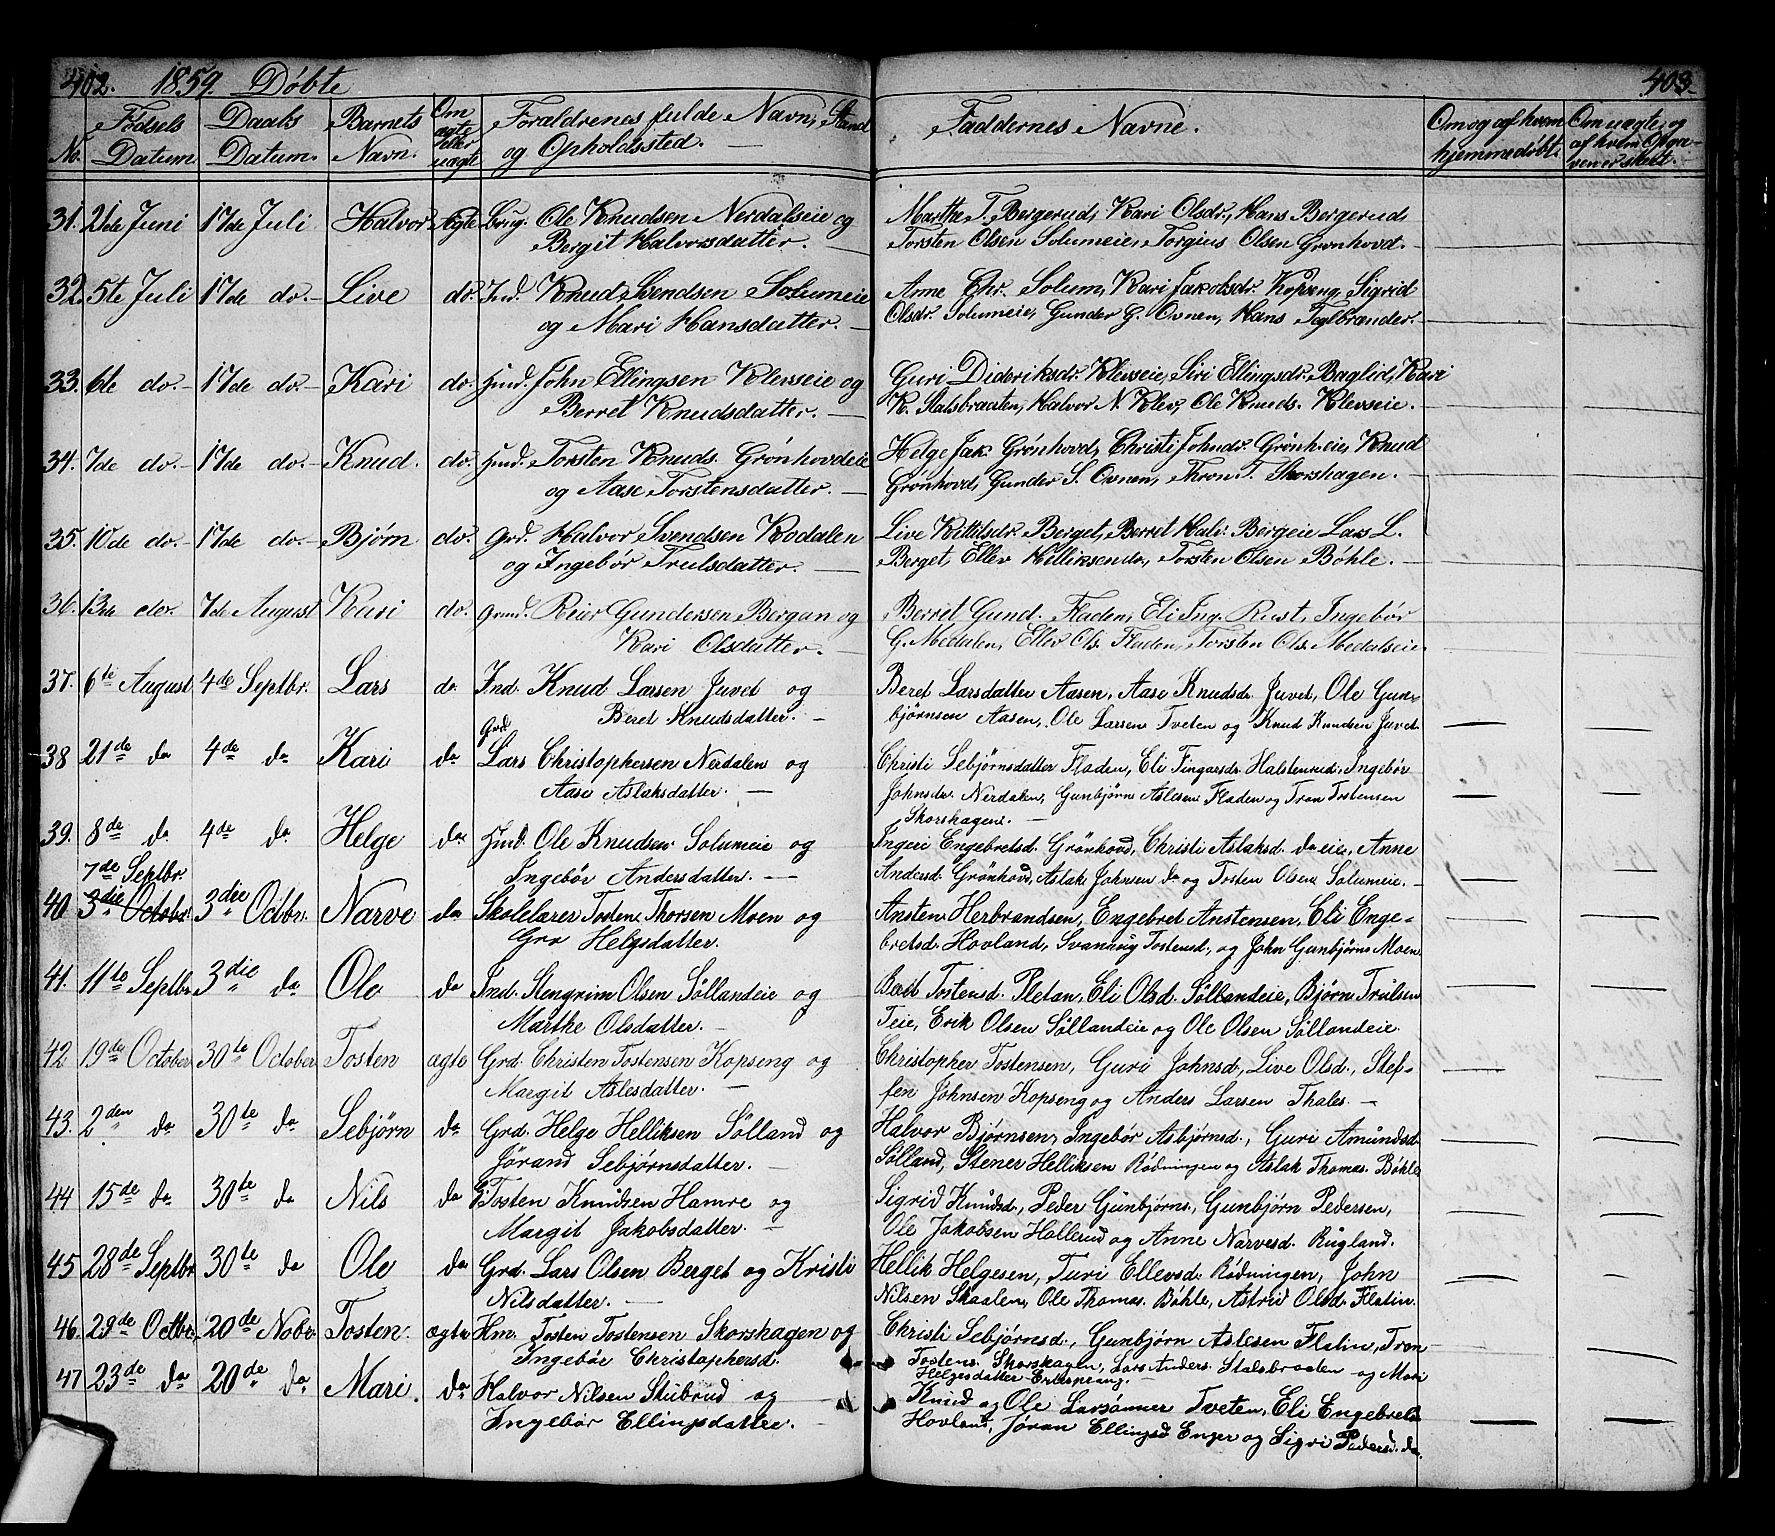 402. 1859. Døbte 403.
No. Fødsels Datum. Daabs Datum. Barnets Navn. Om ægte eller uægte Foraldrenes fulde Navn, Stand og Opholdssted. Faddernes Navne. Om og af hvem hjemmedøbt. Om uægte, og af hvem Opgaven er skeet.
31. 21de Juni 17de Juli Halvor Ægte Ole Knudsen Nerdalseie og Marthe T. Bergerud, Kari Olsdr, Hans Bergerud,
Bergit Halvorsdatter. Torsten Olsen Solumeie, Torgius Olsen Grønhovd.
32. 5te Juli 17de do. Live do. Ind. Knud Svendsen Solumeie Anne Chr. Solum, Kari Jakobsdr. Kopseng, Sigrid
og Mari Hansdatter. Olsdr. Solumeie, Gunder G. Ovnen, Hans Teglbrænder.
33. 6te do. 17de do. Kari do. Huud. John Ellingsen Klevseie og Guri Dideriksdr. Klevseie, Siri Ellingsdr. Baglid, Kari
Berret Knudsdatter. K. Stalsbraaten, Halvor N. Klev, Ole Knuds. Klevseie.
34. 7de do. 17de do. Knud. do. Huud. Torsten Knuds. Grønhovdeie Helge Jak. Grønhovd, Christi Johndr. Grønh.eie, Knud
og Aase Torstensdatter. Grønhovd, Gunder S. Ovnen, Thron T. Skorshagen.
35. 10de do. 17de do. Bjørn do. Grd. Halvor Svendsen Kodalen Live Kittilsdr. Berget, Berret Halv. Bergeie Lars L.
og Ingebør Trulsdatter. Berget, Ellev Helliksen do, Torsten Olsen Bøhle.
36. 13de do. 7de August Kari do. Reier Gundersen Bergan og Berret Gund. Fladen, Eli Ing. Rust, Ingebør
Kari Olsdatter. G. Medalen, Ellev Ols. Fladen, Torsten Ols. Medalseie.
37. 6te August 4de Septbr. Lars do. Ind. Knud Larsen Juvet og Beret Larsdatter Aasen, Aase Knudsdr. Juvet, Ole Gun-
Beret Knudsdatter. bjørnsen Aasen, Ole Larsen Tveten og Knud Knudsen Juvet.
38 21de da 4de da Kari da Grd. Lars Christophersen Nerdalen og Christi Sebjørnsdatter Fladen, Eli Fingarsdr. Halstenrud, Ingebør
Aase Aslaksdatter. Johnsdr. Nerdalen, Gunbjørn Aslesen Fladen og Tron Tostensen
Skorshagen.
39. 8de da 4de da Helge da Huud. Ole Knudsen Solumeie og Ingeie Engebretsd. Grønhovd, Christi Aslaksd. da eie, Anne
Ingebør Andersdatter. Andersd. Grønhovd, Aslak Johnsen da og Tosten Olsen Solumeie.
7de Septbr.
40 3die October 3die Octbr. Narve da Skolelærer Tosten Thorsen Moen og Ansten Herbrandsen, Engebret Anstensen, Eli Enge-
Gro Helgesdatter. bretsd. Hovland, Svanaug Tostensd., og John Gunbjørns. Moen.
41. 11te Septbr 3die da Ole da Ind. Stengrim Olsen Søllandeie og Berit Tostensd. Pletan, Eli Olsd. Søllandeie, Bjørn Trulsen
Marthe Olsdatter. Teie, Erik Olsen Søllandeie og Ole Olsen Søllandeie.
42 19de October 30te October Tosten ægte Grd. Christen Tostensen Kopseng og Christopher Tostensen, Guri Johnsd., Live Olsd., Stef-
Margit Aslesdatter. fen Johnsen Kopseng og Anders Larsen Thales.
43. 2den da 30te da Sebjørn da Grd. Helge Helliksen Sølland og Halvor Bjørnsen, Ingebør Asbjørnsd., Guri Amundsd.
Jørand Sebjørnsdatter. Sølland, Stener Helliksen Rødningen og Aslak Thomas. Bøhle
44 15de da 30te da Nils da Tosten Knudsen Hamre og Sigrid Knudsd., Peder Gunbjørns., Gunbjørn Pedersen,
Margit Jakobsdatter. Ole Jakobsen Hollerud og Anne Narvesd. Rugland.
45 28de Septbr 30te da Ole da Grd. Lars Olsen Berget og Kristi Hellik Helgesen, Turi Ellevsd. Rødningen, John
Nilsdatter. Nilsen Skaalen, Ole Thomas. Bøhle, Astrid Olsd. Flatin.
46. 29de Octbr. 20de Nobr. Tosten. ægte Hm. Tosten Tostensen Skorshagen og Christi Sebjørnsd., Gunbjørn Aslesen Flatin, Tron
Ingebør Christophersd. Tostens. Skorshagen, Lars Anders. Stalsbraaten og Mari
Helgesdatter
47 23de da 20de da Mari. da Halvor Nilsen Stubrud og Knud og Ole Larsønner Tveten, Eli Engebretsd.
Ingebør Ellingsdatter. Hovland, Jøran Ellingsd Enger og Sigri Pedersd. da.